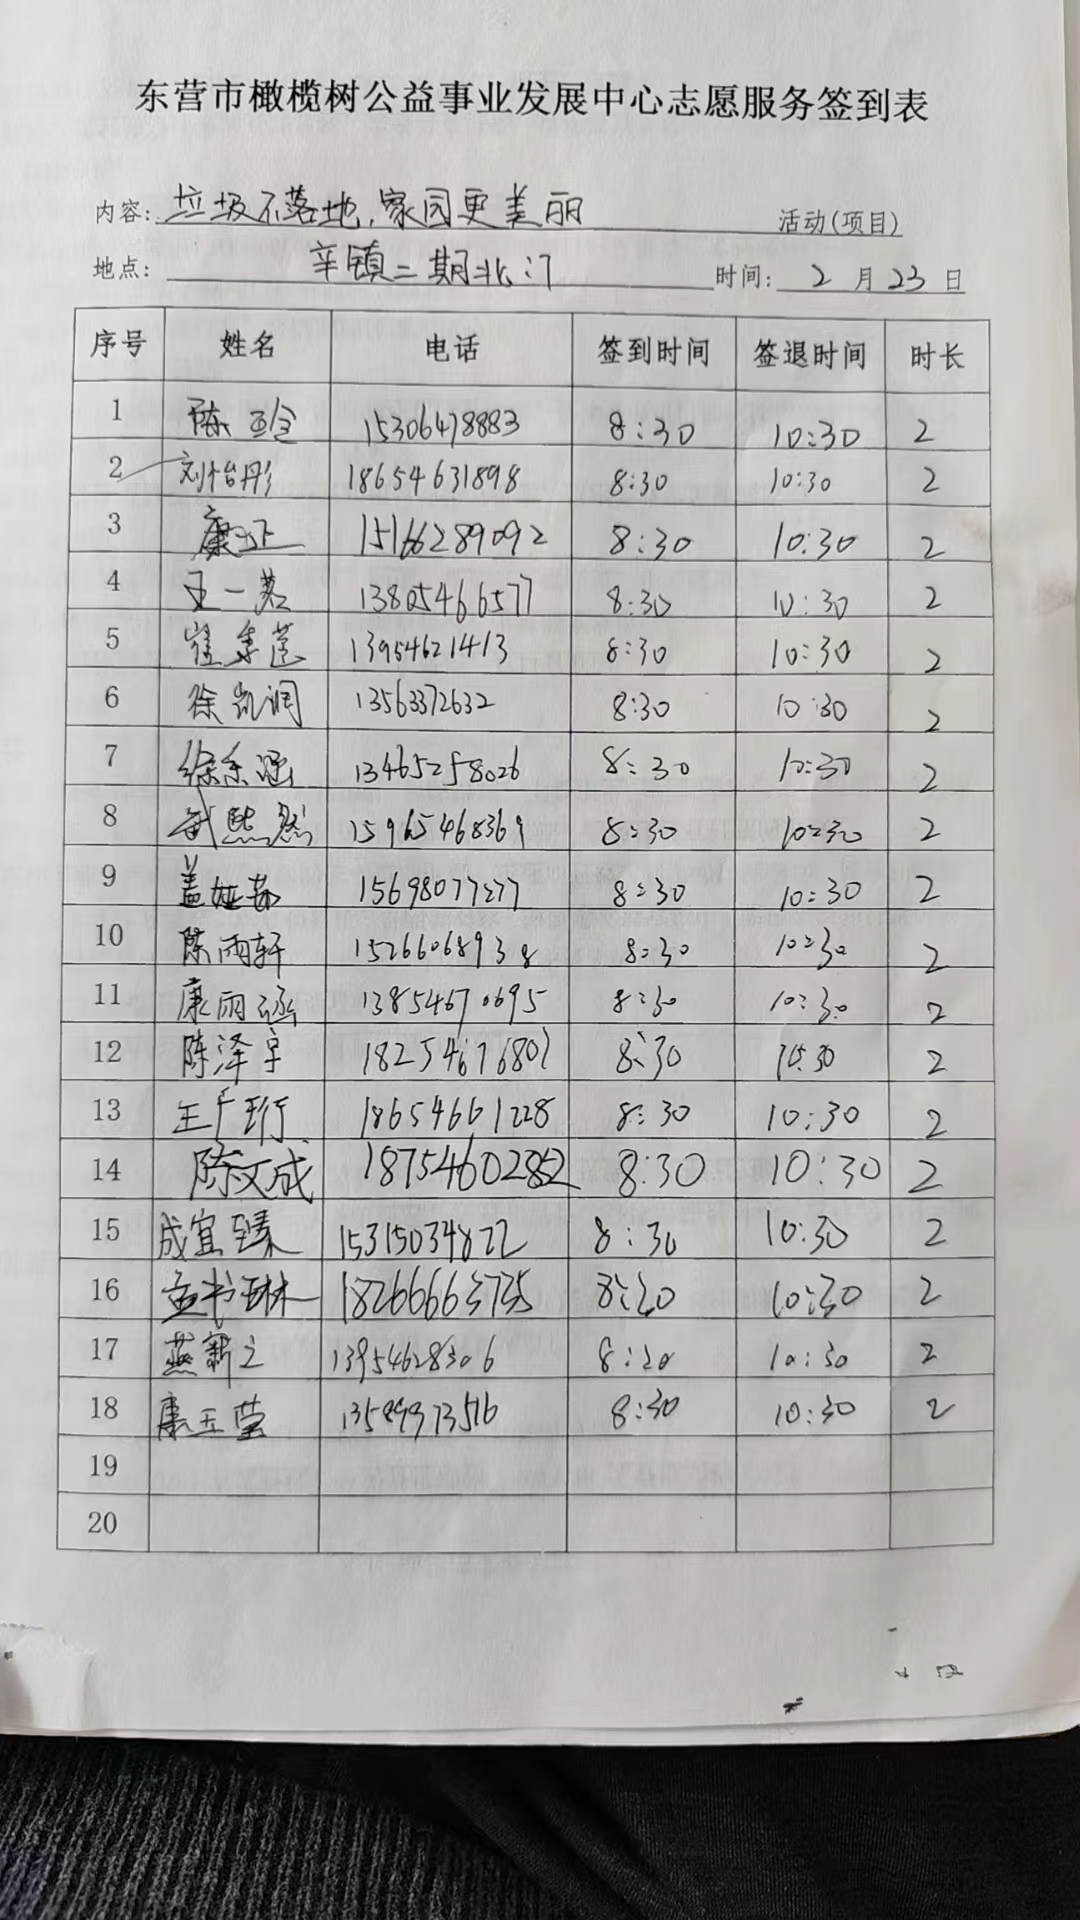 东营市橄榄树公益事业发展中心志愿服务签到表
内容: 垃圾不落地,家园更美丽 活动(项目)
地点: 辛镇二期北门 时间: 2 月 23 日
序号 姓名 电话 签到时间 签退时间 时长
1 陈 15306478883 8:30 10:30 2
2 刘怡彤 18654631898 8:30 10:30 2
3 康 15166289092 8:30 10:30 2
4 王一茗 13805466577 8:30 10:30 2
5 崔 13954621413 8:30 10:30 2
6 徐凯润 13563372632 8:30 10:30 2
7 徐东涵 13465258026 8:30 10:30 2
8 武熙然 15965468369 8:30 10:30 2
9 盖娅茹 15698077277 8:30 10:30 2
10 陈雨轩 15266068938 8:30 10:30 2
11 康雨涵 13854670695 8:30 10:30 2
12 陈泽宇 18254676807 8:30 10:30 2
13 王广珩 18654661228 8:30 10:30 2
14 陈文成 18754602852 8:30 10:30 2
15 成宜臻 15315034822 8:30 10:30 2
16 孟书琳 18266663735 8:30 10:30 2
17 燕新之 13954628306 8:30 10:30 2
18 康玉莹 13589973516 8:30 10:30 2
19
20